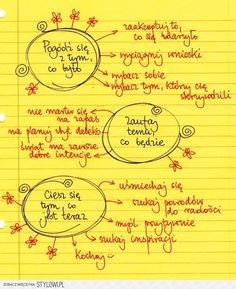 zaakceptuj to,
co się zdarzyło
Pogódź się
z tym,
co było
wyciągnij wnioski
wybacz sobie
wybacz tym, którzy cię
skrzywdzili
nie martw się
na zapas
na planuj zbyt daleko
świat ma zawsze
dobre intencje
Zaufaj
temu,
co będzie
Ciesz się
tym, co
jest teraz
uśmiechaj się
szukaj powodów
do radości
myśl pozytywnie
szukaj inspiracji
Kochaj
STYLOWI.PL